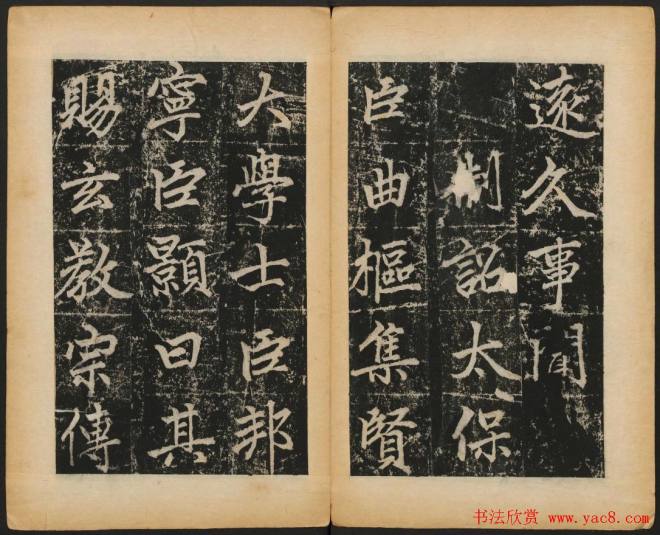 遠久事聞
制詔太保
臣曲樞集賢
大學士臣邦
寧臣顥曰其
賜玄教宗傳
书法欣赏 www.yac8.com